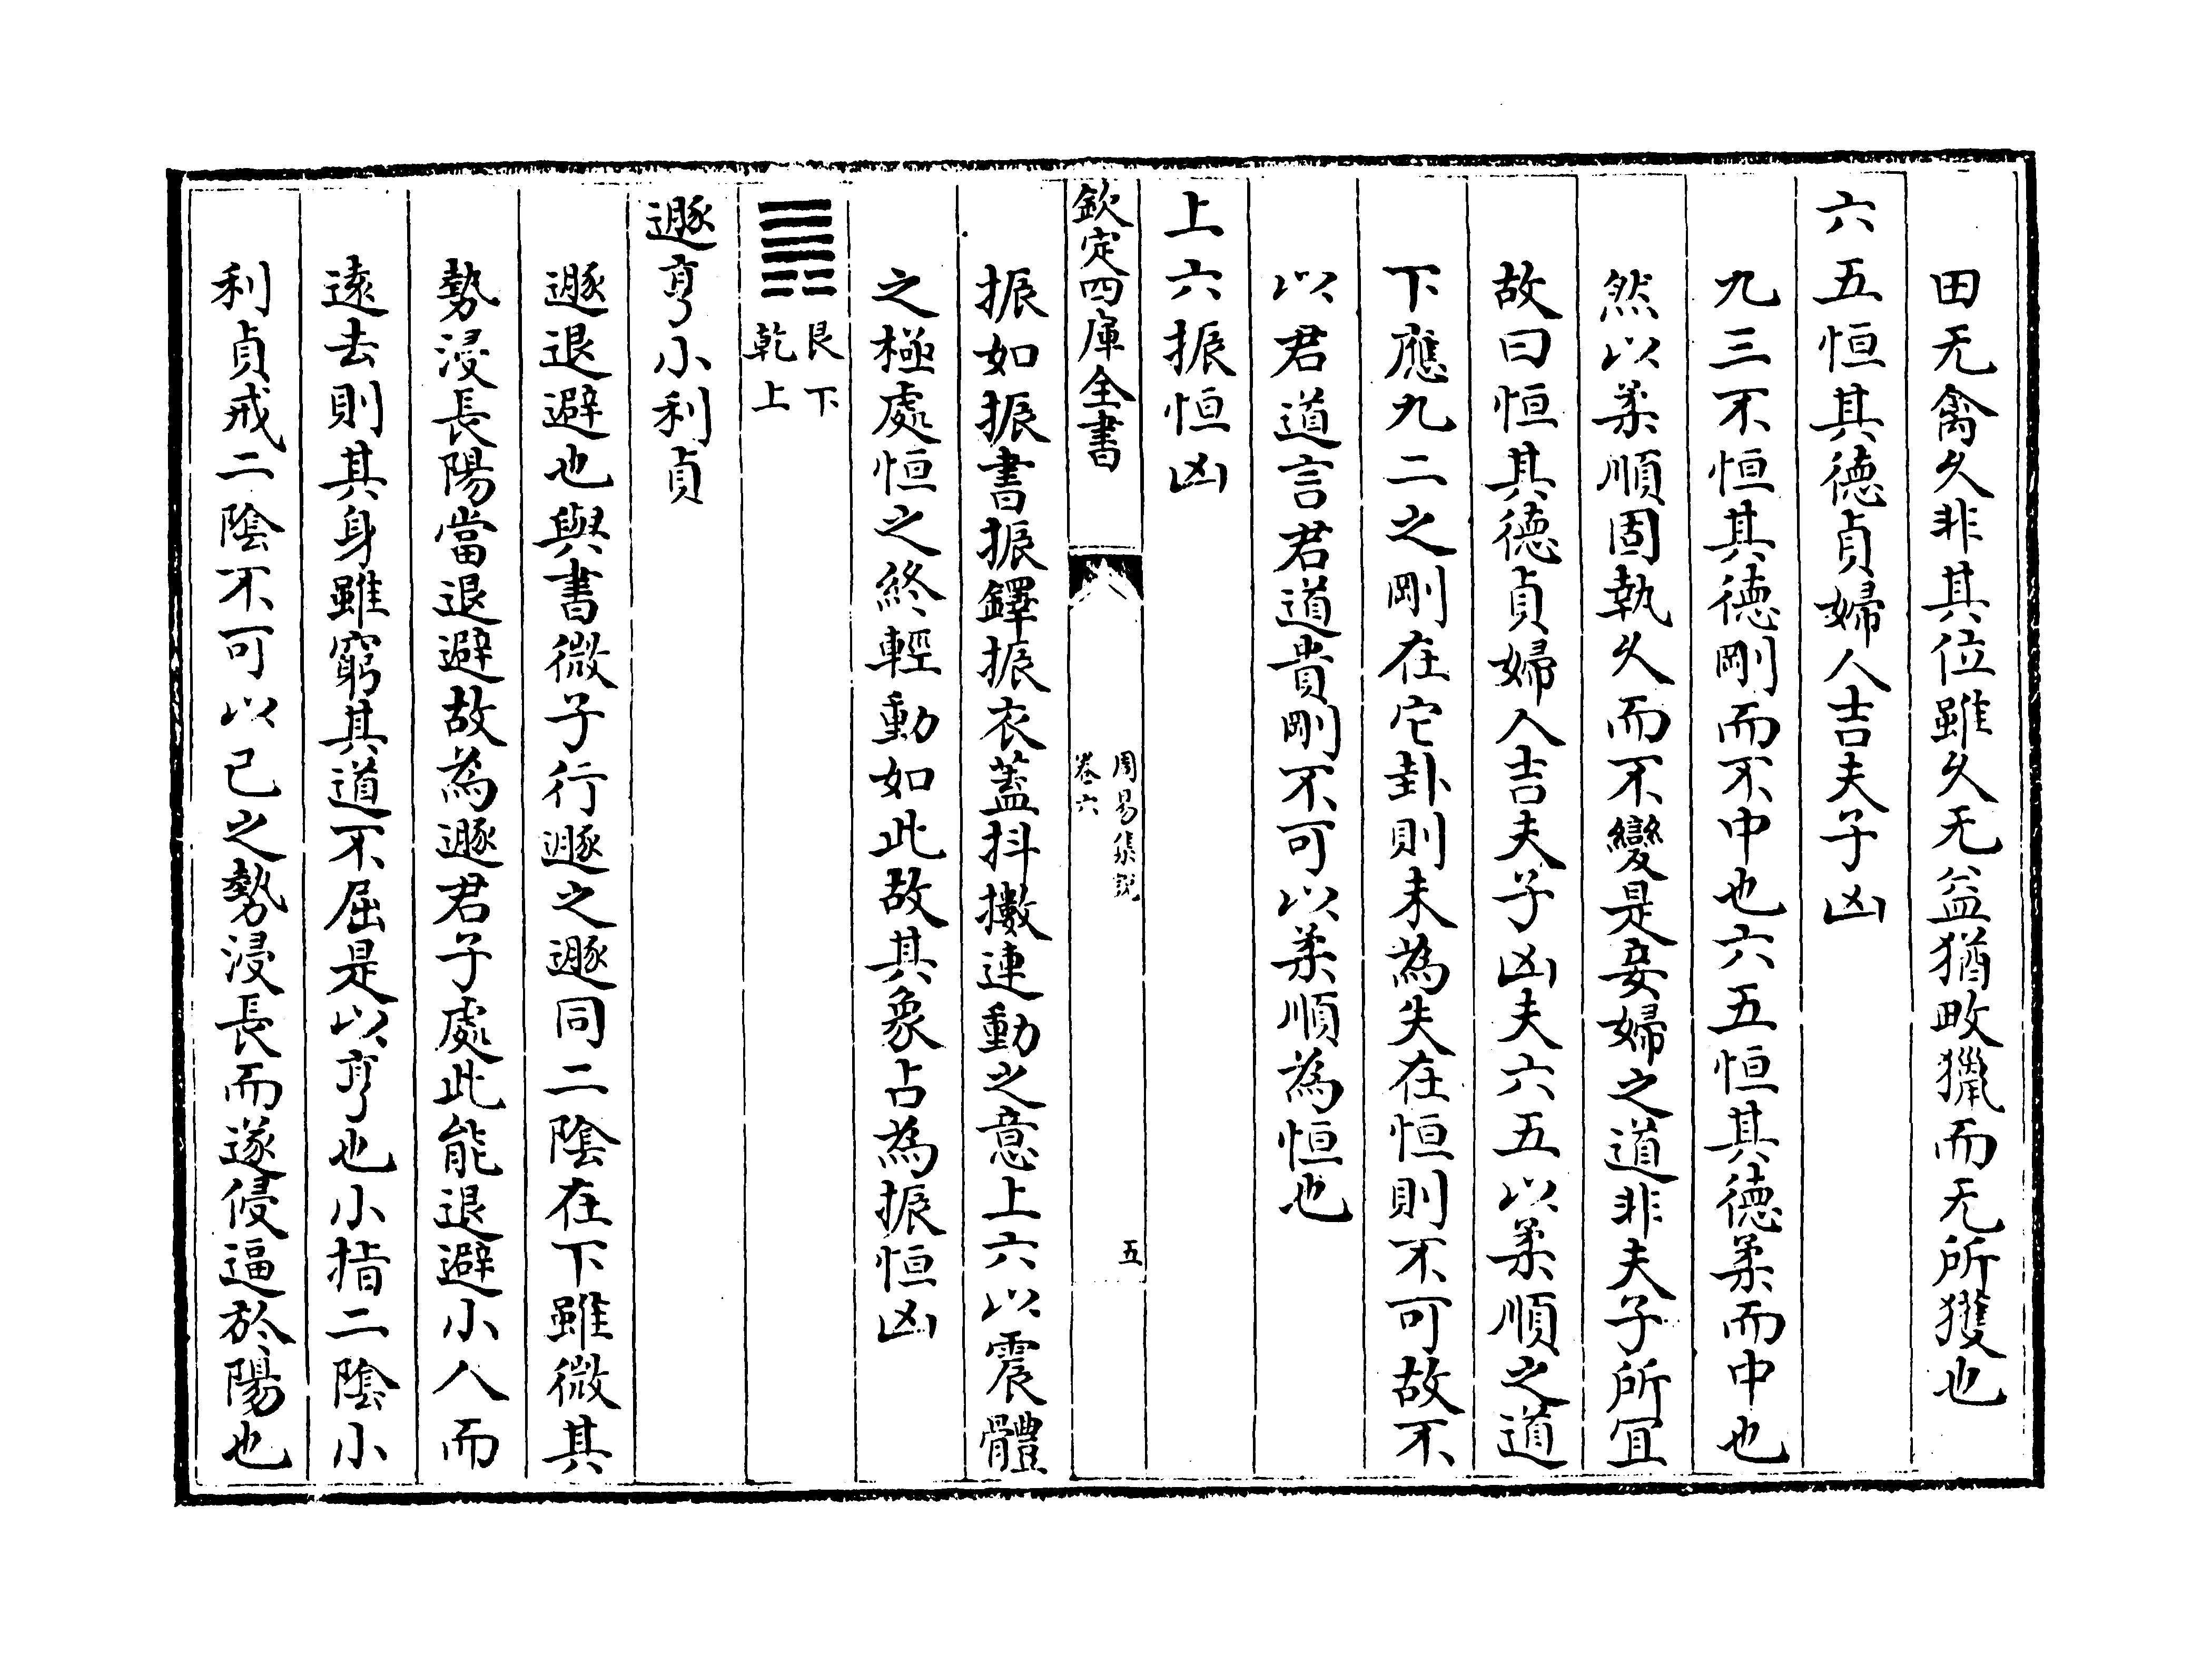 田无禽久非其位雖久无益猶畋獵而无所獲也
六五恒其徳貞婦人吉夫子凶
九三不恒其徳剛而不中也六五恒其徳柔而中也
然以柔順固執久而不變是妾婦之道非夫子所宜
故曰恒其徳貞婦人吉夫子凶夫六五以柔順之道
下應九二之剛在它卦則未為失在恒則不可故不
以君道言君道貴剛不可以柔順為恒也
上六振恒凶
欽定四庫全書
周易集說
卷六
五
振如振書振鐸振衣蓋抖擻連動之意上六以震體
之極處恒之終輕動如此故其象占為振恒凶
䷠
艮下
乾上
遯亨小利貞
遯退避也與書微子行遯之遯同二隂在下雖微其
勢浸長陽當退避故為遯君子處此能退避小人而
逺去則其身雖窮其道不屈是以亨也小指二隂小
利貞戒二隂不可以已之勢浸長而遂侵逼於陽也